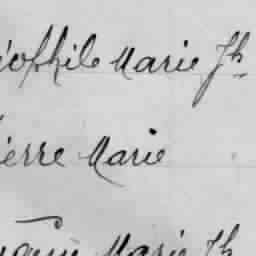 éophile Marie Jh
ierre Marie
Marie Jh